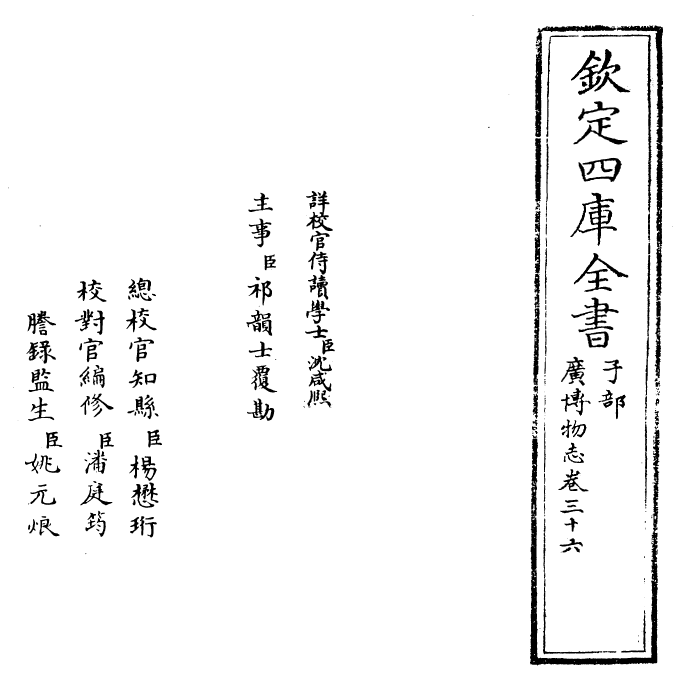 欽定四庫全書
子部
廣博物志卷三十六
詳校官侍讀學士臣沈咸熙
主事臣祁韻士覆勘
總校官知縣臣楊懋珩
校對官編修臣潘庭筠
謄錄監生臣姚元烺